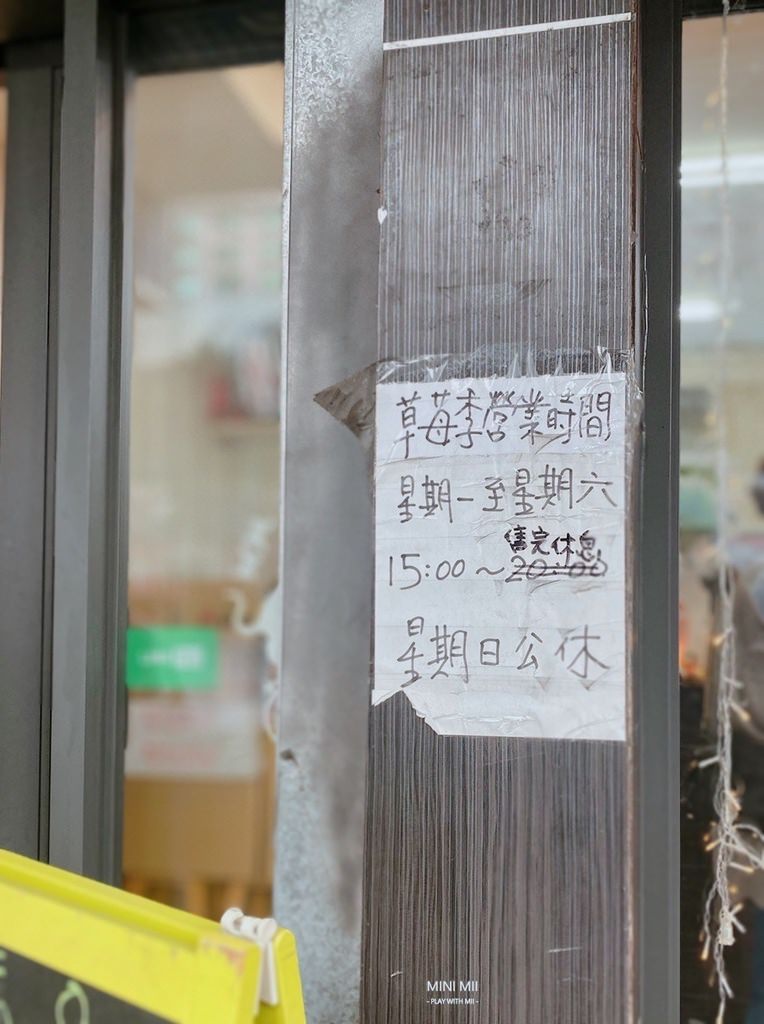 草莓季營業時間
星期一至星期六
售完休息
15:00～20:00
星期日公休
MINI MII
- PLAY WITH MII -